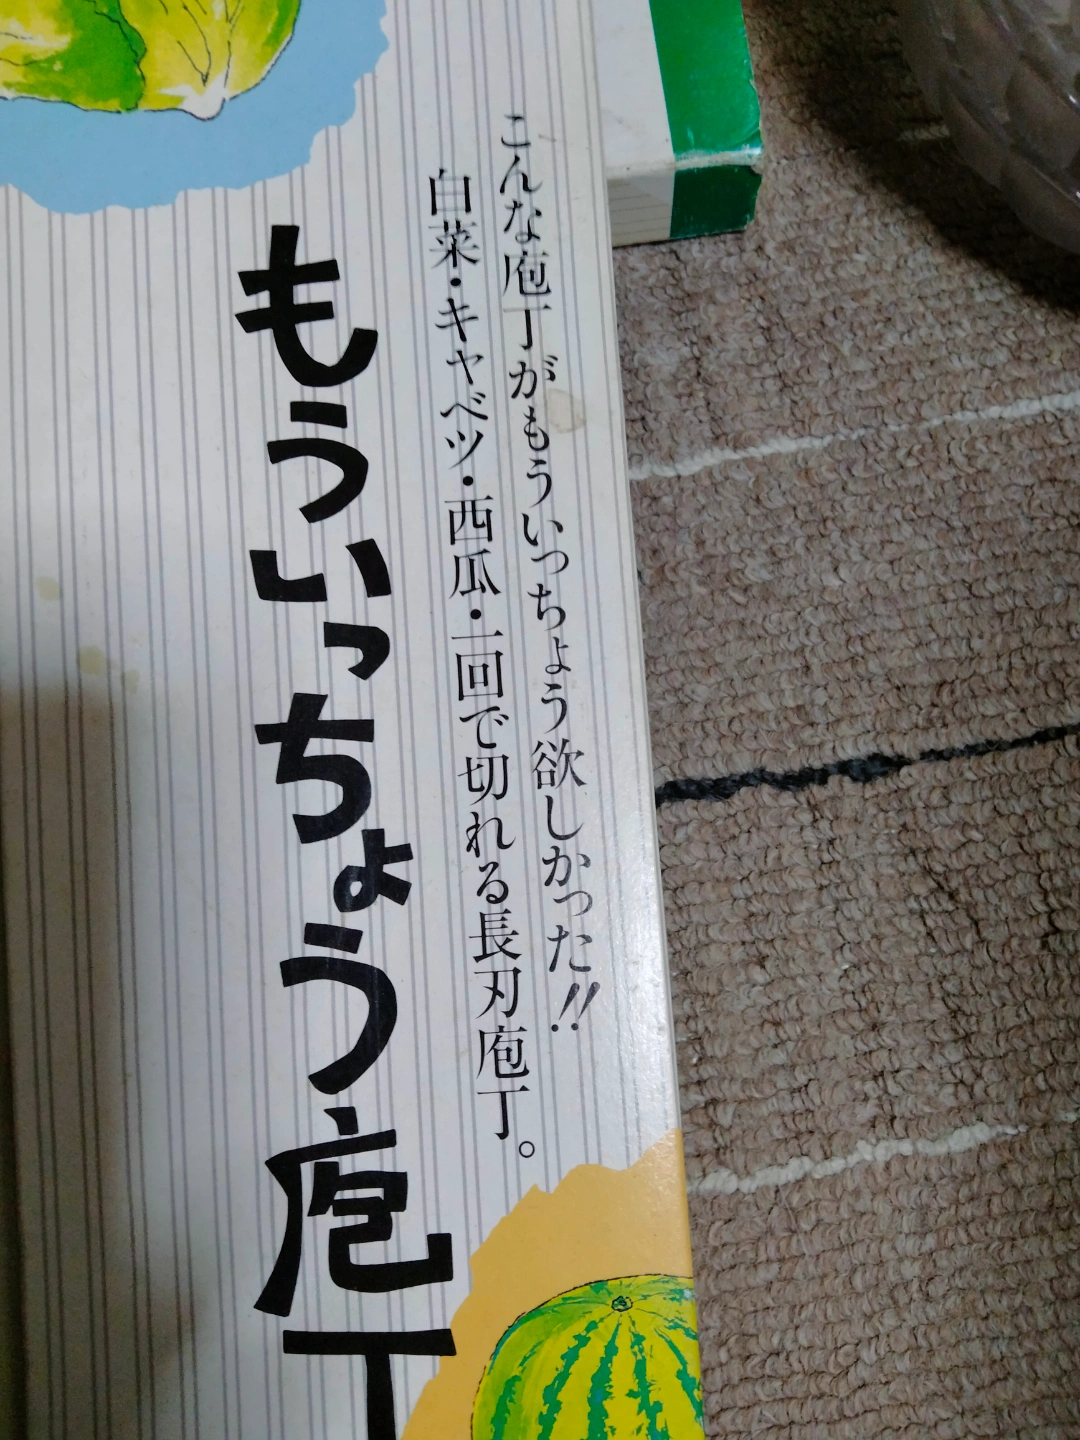 こんな庖丁がもういっちょう欲しかった!!
白菜・キャベツ・西瓜・一回で切れる長刃庖丁。
もういっちょう庖丁